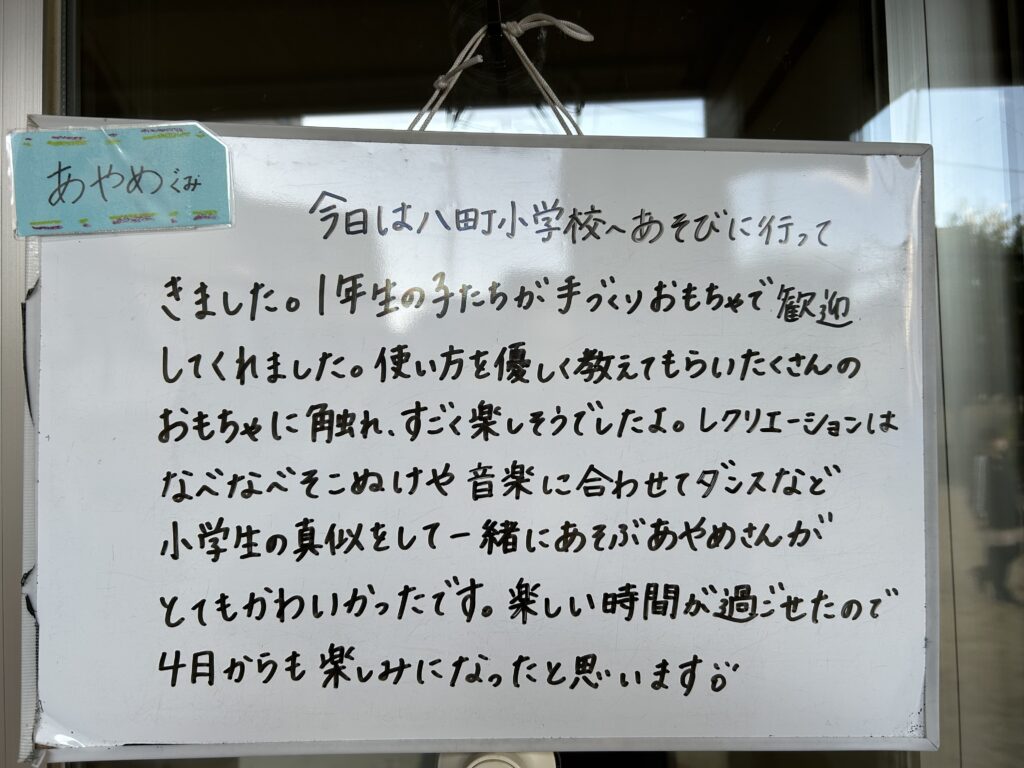 あやめぐみ
今日は八町小学校へあそびに行って
きました。1年生の子たちが手づくりおもちゃで歓迎
してくれました。使い方を優しく教えてもらいたくさんの
おもちゃに触れ、すごく楽しそうでしたよ。レクリエーションは
なべなべそこぬけや音楽に合わせてダンスなど
小学生の真似をして一緒にあそぶあやめさんが
とてもかわいかったです。楽しい時間が過ごせたので
4月からも楽しみになったと思います